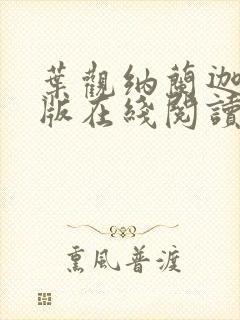 葉觀納蘭迦
版在綫閱讀
熏風普渡